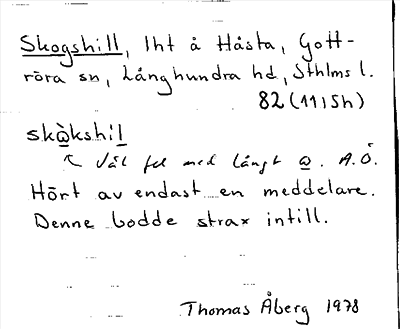 Skogshill, lht å Håsta, Gott-
röra sn, Långhundra hd, Sthlms l.
82 (11I5h)
skὼkshil
↖ Väl fel med långt ω. A.Ö.
Hört av endast en meddelare.
Denne bodde strax intill.
Thomas Åberg 1978